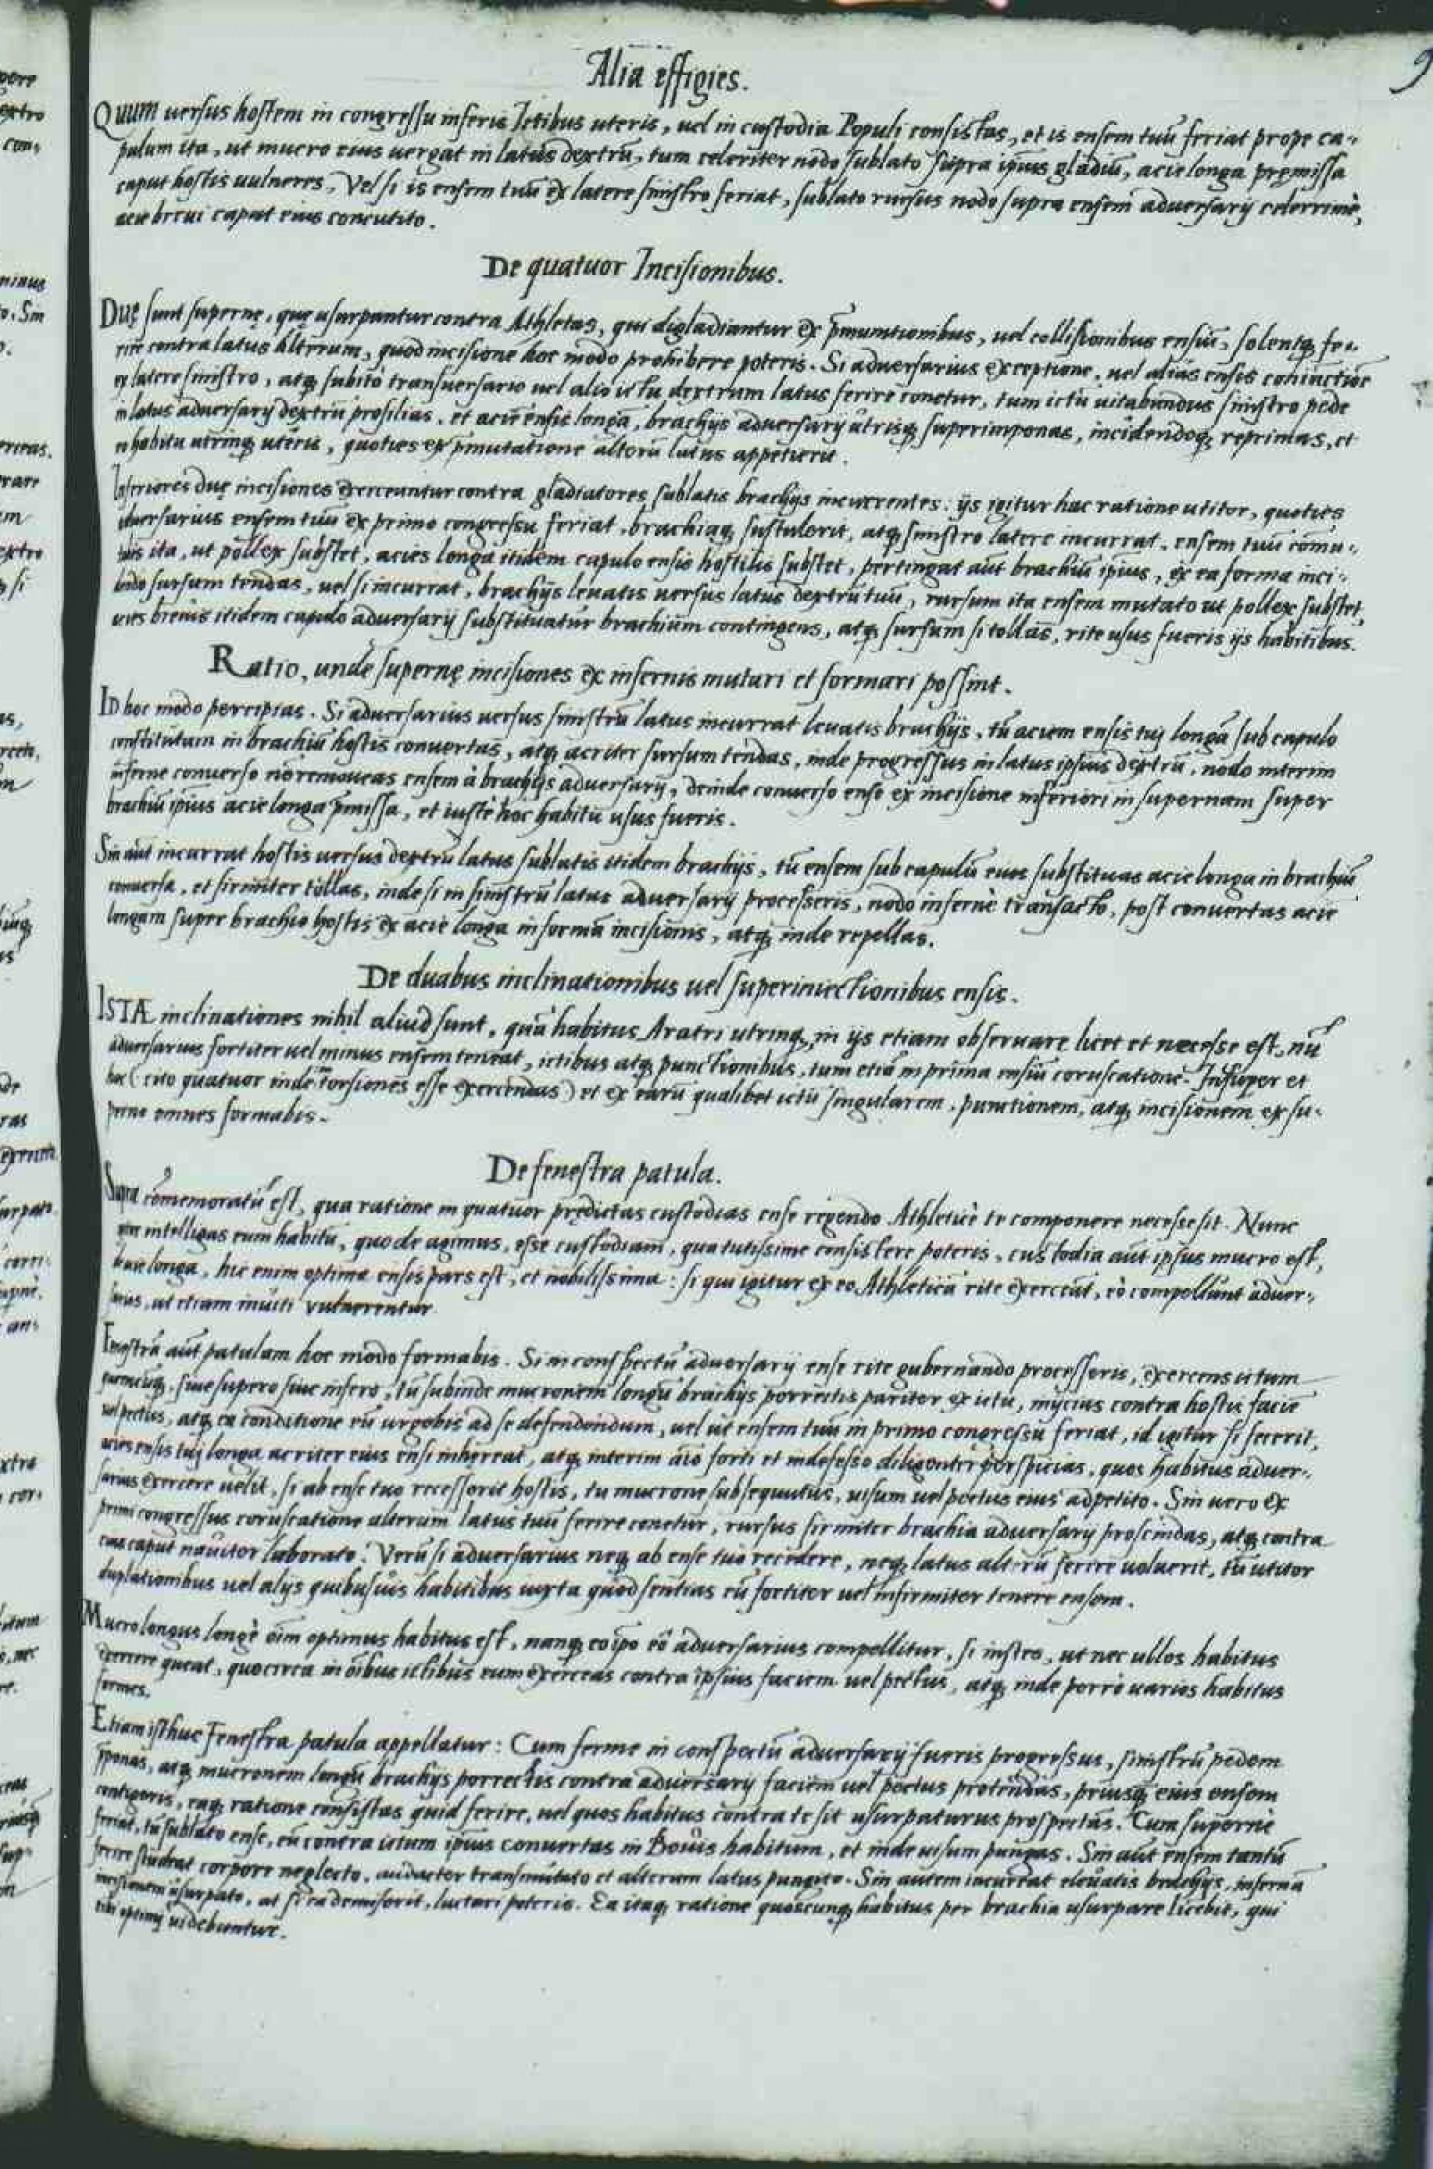 Alia effigies.
Quum uersus hostem in congressu inferis Ictibus uteris, uel in custodia Populi consistas, et is ensem tuū feriat prope ca-
pulum ita, ut mucro eius uergat in latus dextrū, tum celeriter nodo sublato supra ipsius gladiū, acie longa pręmissa
caput hostis uulneres, Vel si is ensem tuū ex latere sinistro feriat, sublato rursus nodo supra ensem adversarij celerrimè,
acie breui caput eius concutito.
De quatuor Incisionibus.
Duę sunt supernę, quę usurpantur contra Athletas, qui digladiantur ex p̄mutationibus, uel collisionibus ensiū, solentq; fe-
rire contra latus alterum, quod incisione hoc modo prohibere poteris. Si adversarius exceptione, uel alias ensis coniunctiōe
ex latere sinistro, atq; subitò transuersario uel alio ictu dextrum latus ferire conetur, tum ictū uitabundus sinistro pede
in latus adversarij dextrū prosilias, et aciē ensis longā, brachijs adversarij utrisq; superimponas, incidendoq; reprimas, et
habitu utrinq; utēris, quoties ex p̄mutatione alterū latus appetierit.
Inferiores duę incisiones exercentur contra gladiatores sublatis brachijs incurrentes: ijs igitur hac ratione utitor, quoties
adversarius ensem tuū ex primo congressu feriat, brachiaq; sustulerit, atq; sinistro latere incurrat, ensem tuū com̄u-
tabis ita, ut pollex substet, acies longa itidem capulo ensis hostilis substet, pertingat aūt brachiū ipsius, ex ea forma inci-
dendo sursum tendas, uel si incurrat, brachijs leuatis uersus latus dextrū tuū, rursum ita ensem mutato ut pollex substet,
acies breuis itidem capulo adversarij substituatur brachium contingens, atq; sursum si tollas, rite usus fueris ijs habitibus.
Ratio, unde supernę incisiones ex infernis mutari et formari possint.
Id hoc modo percipias. Si adversarius uersus sinistrū latus incurrat leuatis brachijs, tū aciem ensis tuj longā sub capulo
constitutam in brachiū hostis conuertas, atq; acriter sursum tendas, inde progressus in latus ipsius dextrū, nodo interim
infernè conuerso nō remoueas ensem à brachijs adversarij, deinde conuerso ense ex incisione inferiori in supernam super
brachiū ipsius acie longa p̄missa, et iustè hoc habitu usus fueris.
Sin aūt incurrat hostis uersus dextrū latus sublatis itidem brachijs, tū ensem sub capulū eius substituas acie longa in brachiū
conuersa, et firmiter tollas, inde si in sinistrū latus adversarij processeris, nodo infernè transacto, post conuertas acie
longam super brachio hostis ex acie longa in formā incisionis, atq; inde repellas.
De duabus inclinationibus uel superiniectionibus ensis.
ISTÆ inclinationes nihil aliud sunt, quā habitus Aratri utrinq;, in ijs etiam obseruare licet et necesse est, nū
adversarius fortiter uel minus ensem teneat, ictibus atq; punctionibus, tum etiā in prima ensiū coruscatione. Insuper et
hoc (scito quatuor inde torsiones esse exercendas) et ex earū qualibet ictū singularem, punctionem, atq; incisionem ex su-
perne omnes formabis.
De fenestra patula.
Supra com̄emoratū est, qua ratione in quatuor prędictas custodias ense regendo Athleticè te componere necesse sit. Nunc
intelligas eum habitū, quo de agimus, esse custodiam, qua tutissime consistere poteris, custodia aūt ipsius mucro est,
acie longa, hic enim optima ensis pars est, et nobilissima: si qui igitur ex eo Athleticā rite exerceāt, eò compellunt adver-
sarios, ut etiam inuiti vulnerentur.
Fenestrā aūt patulam hoc modo formabis. Si in conspectū adversarij ense rite gubernando processeris, exercens ictum
quemcūq; siue supero siue infero, tū subinde mucronem longū brachijs porrectis pariter ex ictu, inijcias contra hostis faciē
uel pectus, atq; ea conditione eū urgebis ad se defendendum, uel ut ensem tuū in primo congressu feriat, id igitur si fecerit,
acies ensis tuj longa acriter eius ensi inhęreat, atq; interim aīo forti et indefesso diligenter perspicias, quos habitus adver-
sarius exercere uelit, si ab ense tuo recesserit hostis, tu mucrone subsequutus, uisum uel pectus eius adpetito. Sin uero ex
primi congressus coruscatione alterum latus tuū ferire conetur, rursus firmiter brachia adversarij proscindas, atq; contra
eius caput nauiter laborato. Verū si adversarius neq; ab ense tuo recedere, neq; latus alterū ferire uoluerit, tū utitor
duplationibus uel alijs quibusuis habitibus iuxta quod sentias eū fortiter uel infirmiter tenere ensem.
Mucro longus longè oīm optimus habitus est, nanq; eo ipo eō adversarius compellitur, si instes, ut nec ullos habitus
exercere queat, quocirca in oībus ictibus eum exerceas contra ipsius faciem uel pectus, atq; inde porrò uarios habitus
formes.
Etiam isthuc Fenestra patula appellatur: Cum ferme in conspectū adversarij fueris progressus, sinistrū pedem
p̄ponas, atq; mucronem longū brachijs porrectis contra adversarij faciem uel pectus protendas, priusq̄ eius ensem
contigeris, eaq; ratione consistas quid ferire, uel quos habitus contra te sit usurpaturus prospectās. Cum supernè
feriat, tū sublato ense, eū contra ictum ipsius conuertas in Bouis habitum, et inde uisum pungas. Sin aūt ensem tantū
ferire studeat corpore neglecto, audacter transmutato et alterum latus pungito. Sin autem incurrat eleuatis brachijs, infernā
incisionem usurpato, at si ea demiserit, luctari poteris. Ea itaq; ratione quoscunq; habitus per brachia usurpare licebit, qui
tibi optimj uidebuntur.